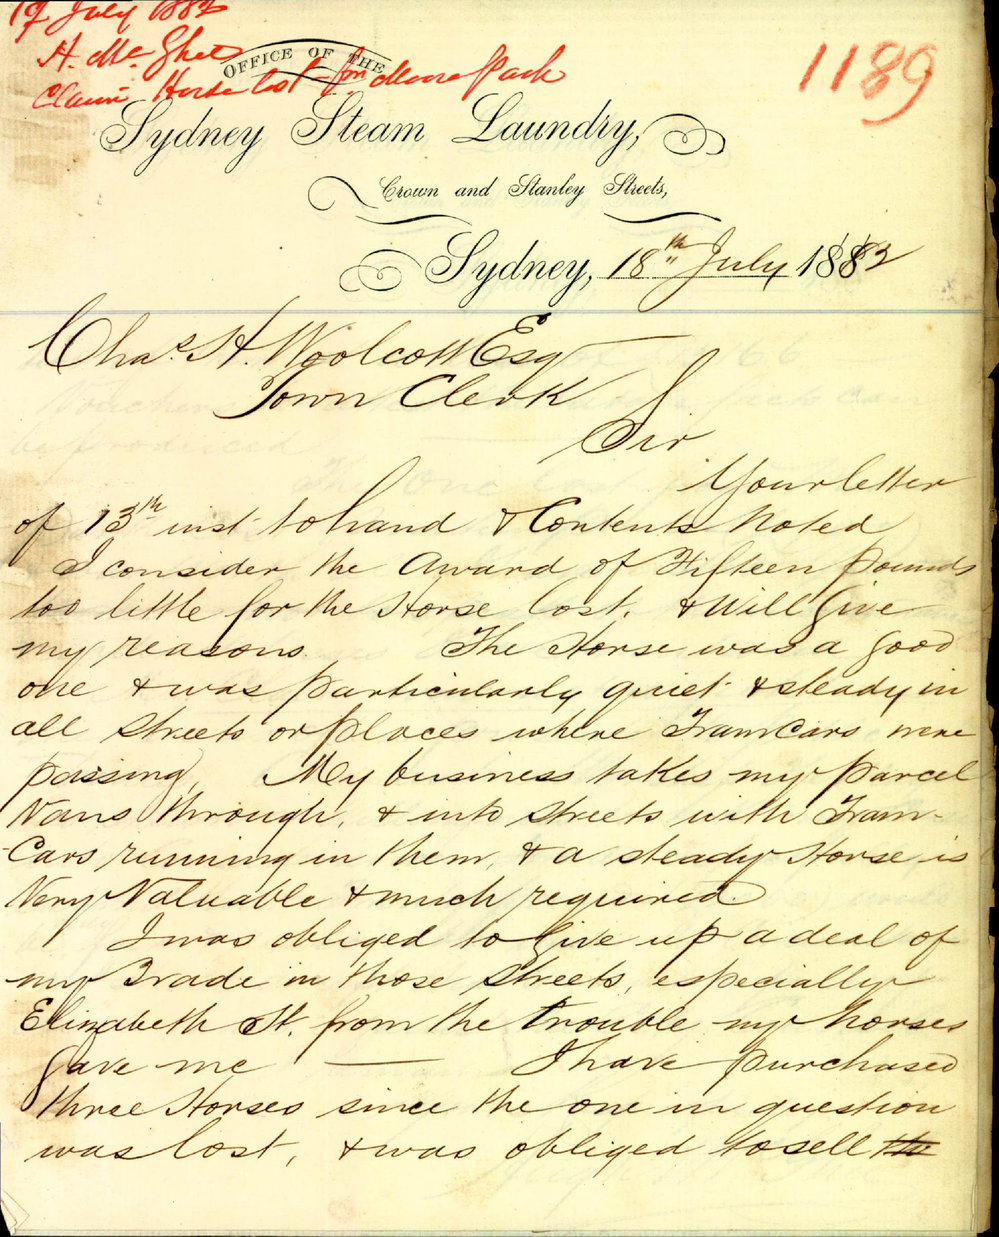 17 July 1882
H. McGhee
Claim Horse lost from Moore Park
1189
OFFICE OF THE
Sydney Steam Laundry,
Crown and Stanley Streets,
Sydney, 18th July 1882
Chas. H. Woolcott Esq
Town Clerk
Sir
Your letter
of 13th inst to hand & Contents Noted
I consider the Award of Fifteen Pounds
too little for the Horse lost, & Will Give
my reasons. The Horse was a good
one & was particularly quiet & steady in
all streets or places where Tram Cars were
passing, My business takes my parcel
Vans through, & into streets with Tram-
Cars running in them, & a steady Horse is
Very Valuable & much required.
I was obliged to Give up a deal of
my Trade in those streets, especially
Elizabeth St. from the trouble my horses
Gave me — I have purchased
three Horses since the one in question
was lost, & was obliged to sell the